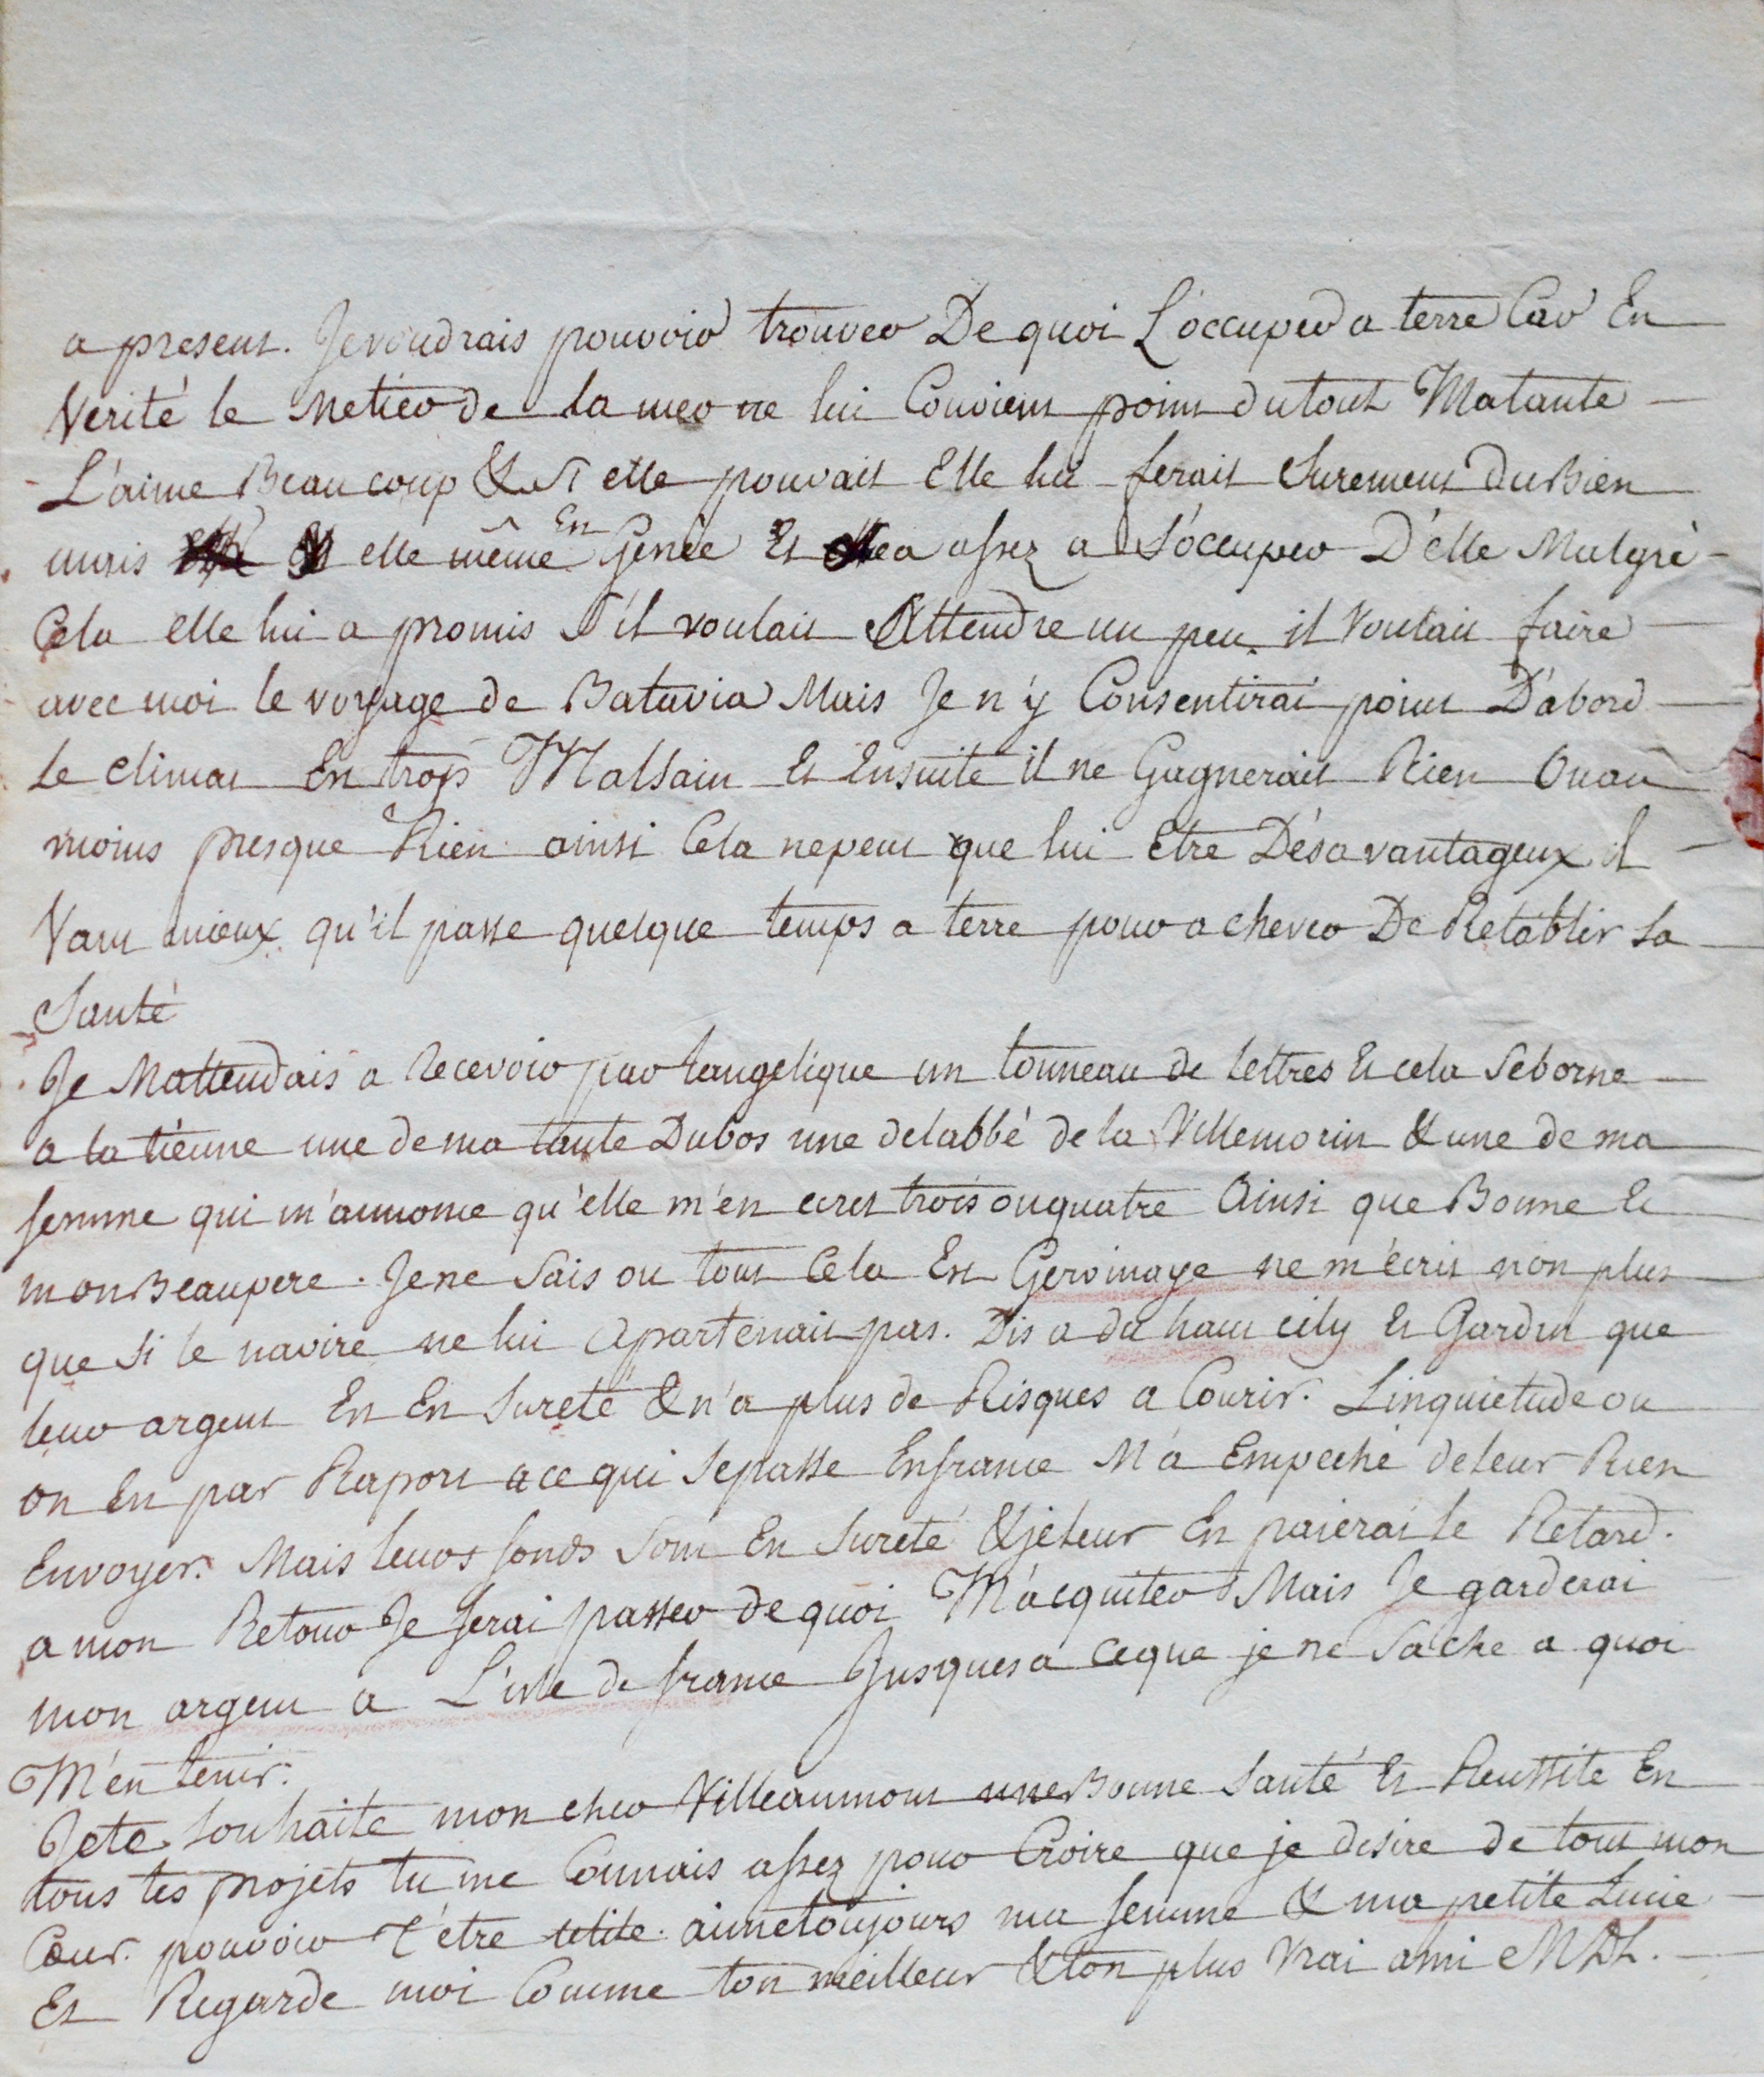 a present. Je voudrais pouvoir trouver De quoi L'occuper a terre Car En
Verité le Metier de la mer ne lui Convient point du tout Matante
L'aime Beaucoup & si elle pouvait Elle lui ferait Surement Du Bien
mais elle même En Genée Et a assez a S'occuper D'elle Malgré
Cela elle lui a promis S'il voulait Attendre un peu. il Voulait faire
avec moi le voyage de Batavia Mais Je n'y Consentirai point D'abord
le climat En trop Malsain Et Ensuite il ne Gagnerait Rien Ou au
moins presque Rien ainsi Cela ne peut que lui Etre Désavantageux il
Vaut mieux qu'il passe quelque temps a terre pour achever De Retablir sa
Santé
Je Mattendais a Recevoir par langelique un tonneau de lettres Et cela Se borne
a la tienne une de ma tante Dubos une de labbé de la Villemorin & une de ma
femme qui m'annonce qu'elle m'en ecrit trois ou quatre Ainsi que Bonne Et
mon Beaupere. Je ne Sais ou tout Cela Est Gervinaye ne m'écrit non plus
que si le navire ne lui Apartenait pas. Dis a du haut cily Et Gardin que
leur argent En En Sureté & n'a plus de Risques a Courir. Linquietude ou
on En par Raport a ce qui Se passe En france M'a Empeché de leur Rien
Envoyer. Mais leurs fonds Sont En Sureté & je leur En paierai le Retard.
a mon Retour Je ferai passer de quoi M'acquiter Mais Je garderai
mon argent a L'isle de france Jusques a ce que je ne Sache a quoi
M'en tenir.
Je te Souhaite mon cher Villeaumont une Bonne Santé Et Reussite En
tous tes projets tu me Connais assez pour Croire que je desire de tout mon
Cœur. pouvoir t'être utile. aime toujours ma femme & ma petite Lucie
Et Regarde moi Comme ton meilleur & ton plus Vrai ami MDL.